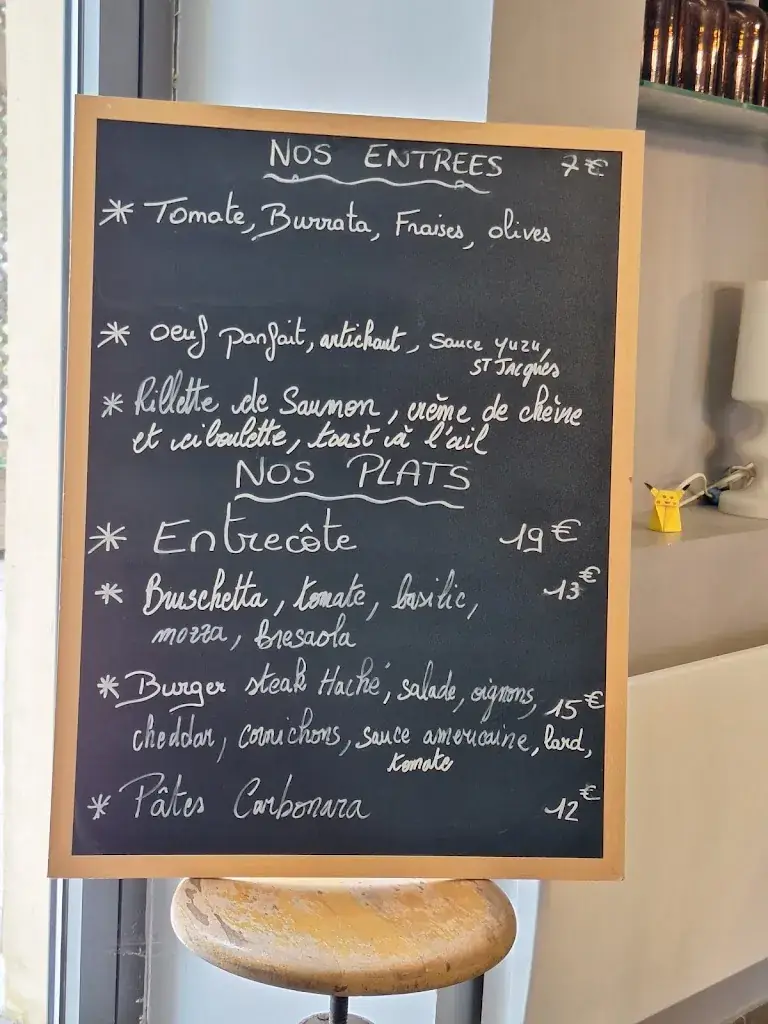 NOS ENTREES 7€
* Tomate, Burrata, Fraises, olives
* Oeuf parfait, artichaut, sauce yuzu,
ST JACques
* Rillette de Saumon, crème de chèvre
et ciboulette, toast à l'ail
NOS PLATS
* Entrecôte 19€
* Bruschetta, tomate, basilic, 13€
mozza, bresaola
* Burger steak Haché, salade, oignons, 15€
cheddar, cornichons, sauce americaine, lard,
tomate
* Pâtes Carbonara 12€